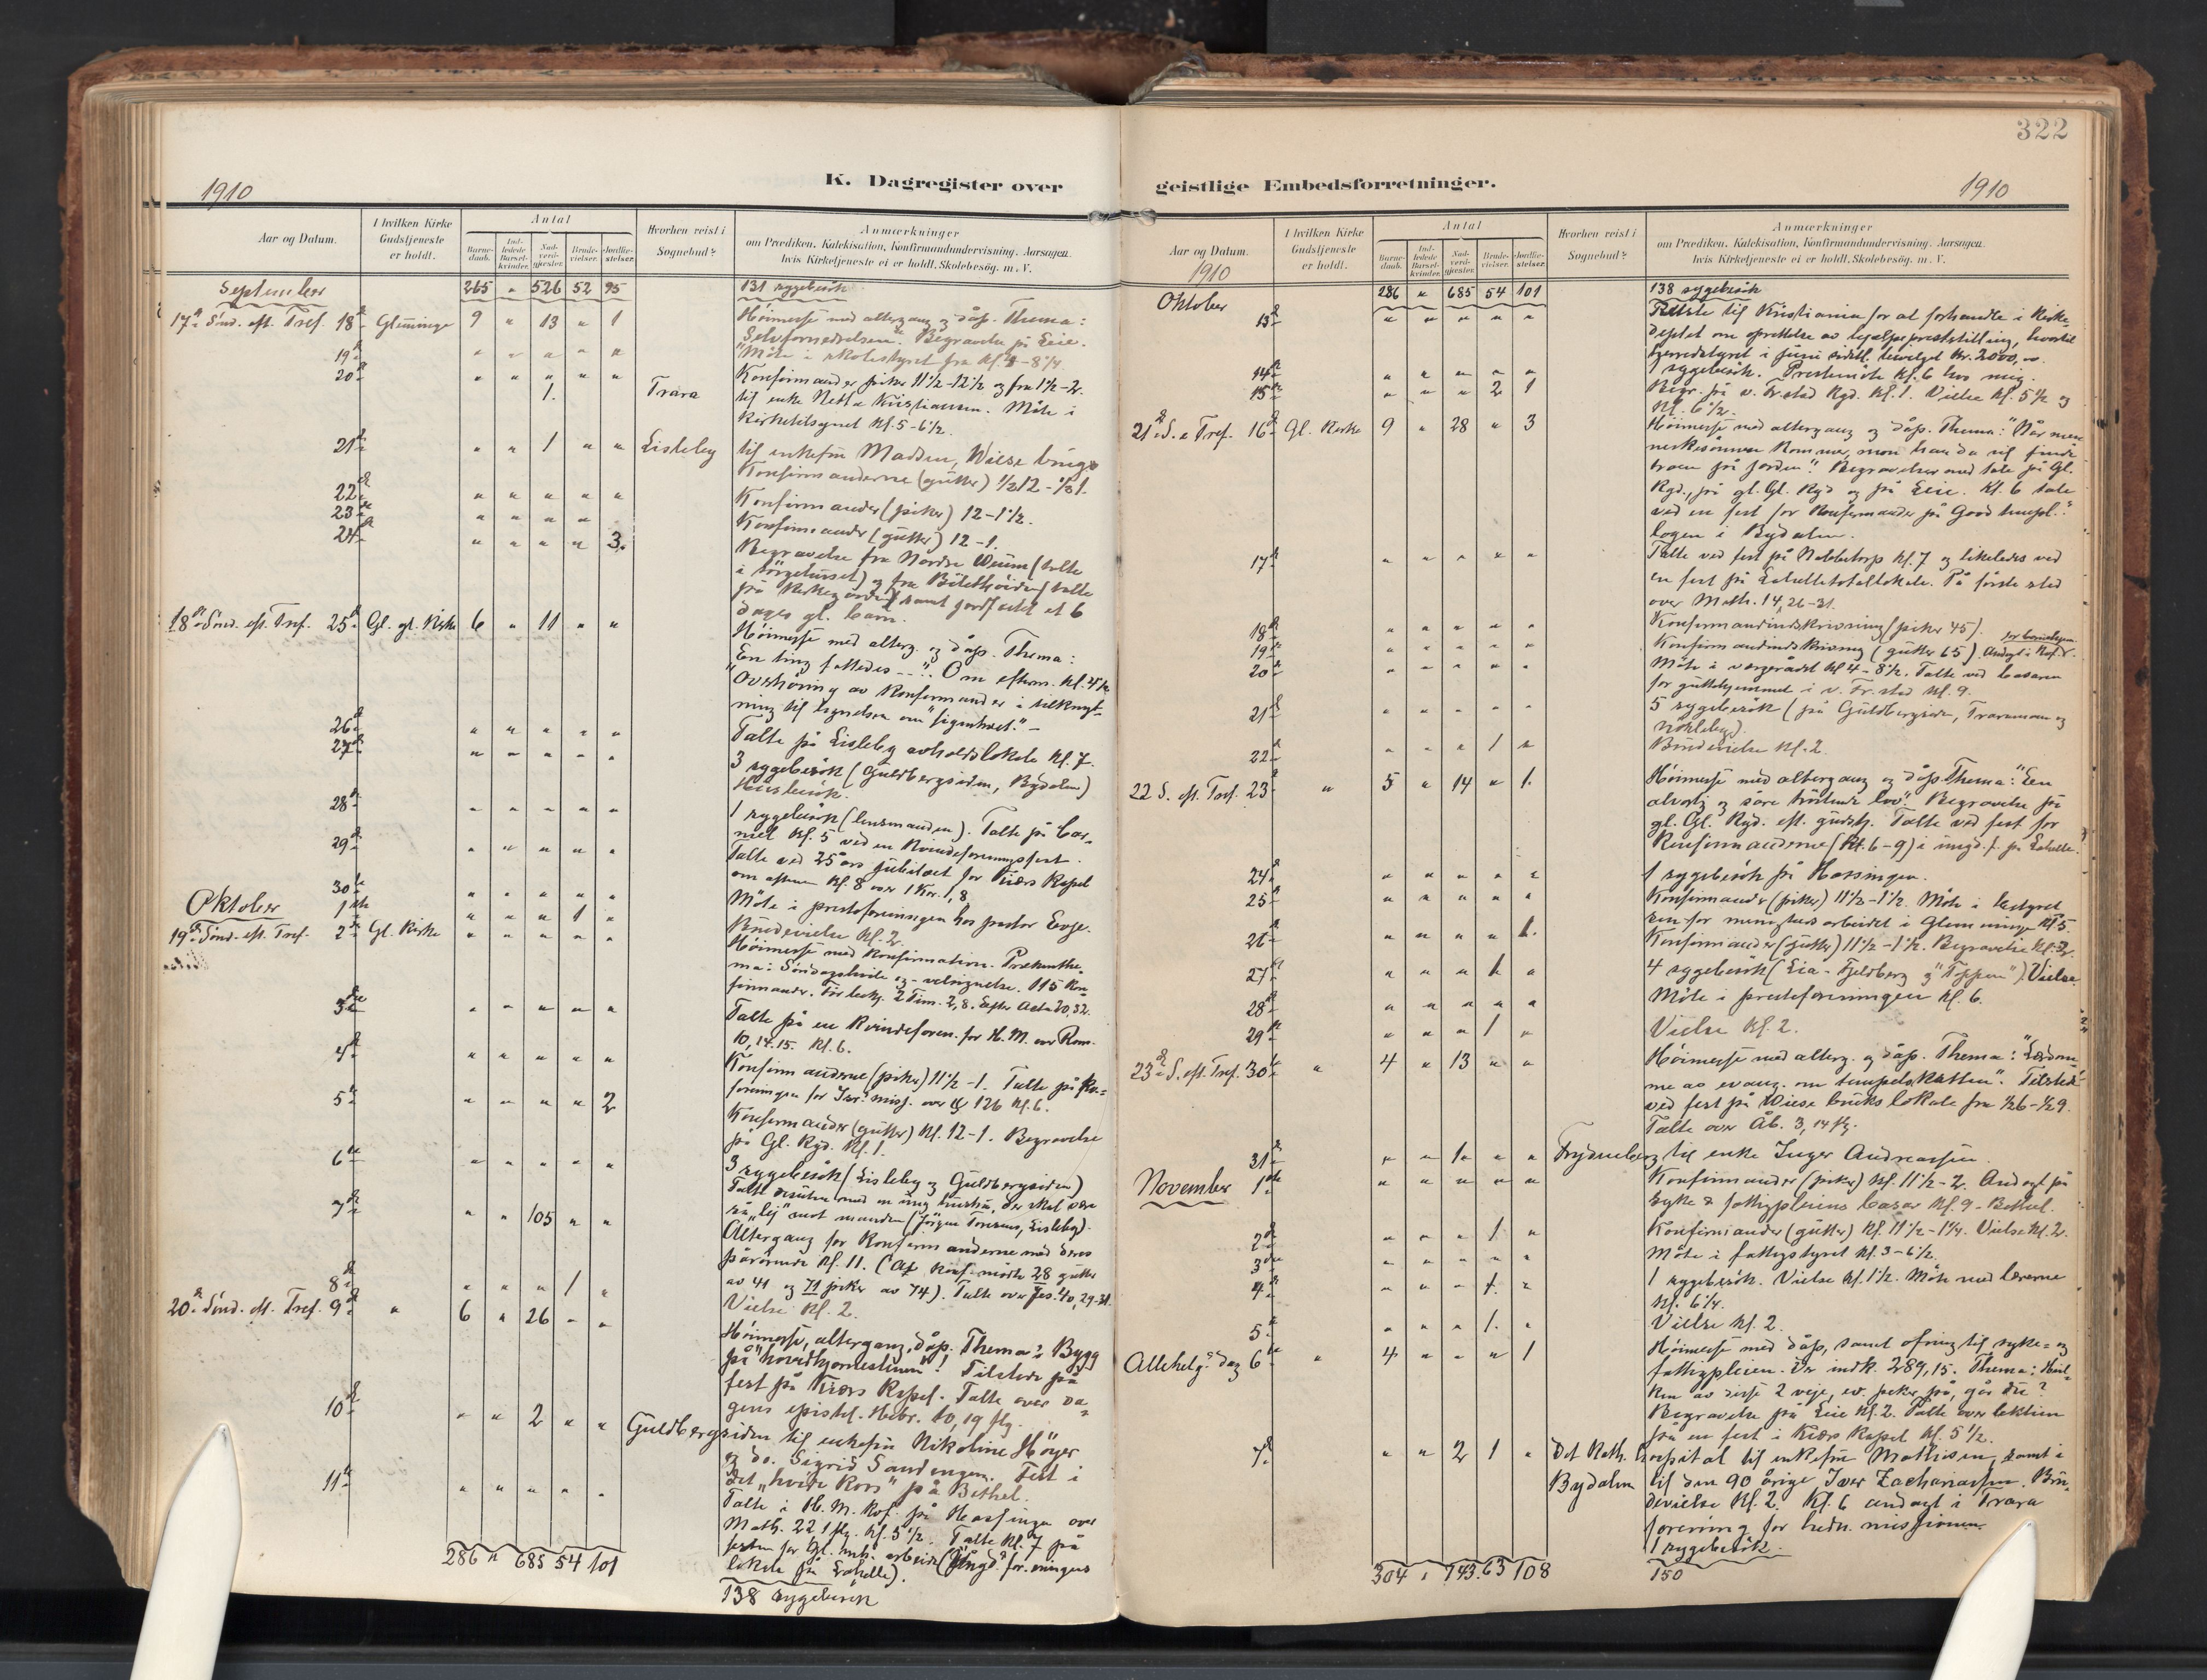 322
K. Dagregister over geistlige Embedsforretninger.
1910
1910
Aar og Datum.
I hvilken Kirke Gudstjeneste er holdt.
Antal
Barne-daab.
Ind-ledede Barsel-kvinder.
Nad-verd-gjester.
Brude-vielser.
Jordfæ-stelser.
Hvorhen reist i Sognebud?
Anmærkninger
om Prædiken. Katekisation, Konfirmandundervisning. Aarsagen,
hvis Kirketjeneste ei er holdt. Skolebesøg. m. V.
September 265 " 526 52 95 131 sygebesök
17de Sönd. eft. Tref. 18de Glemminge 9 " 13 " 1 Höimesse med alterg. og dåp. Thema:
Selvfornedrelsen. Begravelse på Leie.
19de " " " " " Möte i skolestyret fra kl. 4-8 1/4
20de " " " " " Konfirmander piker 11 1/2-12 1/2 og fra 1 1/2-2.
1. Trara til enke Netta Kristiansen. Möte i
kirketilsynet kl. 5-6 1/2.
21de " " 1 " " Lisleby til enkefru Madsen, Wiese brug.
Konfirmanderne (gutter) 1/2 12 - 1/2 1.
22de " " " " " Konfirmander (piker) 12-1 1/2.
23de " " " " Konfirmander (gutter) 12-1.
24de " " " " 3. Begravelse fra Nordre Wium (talte
i sörgehuset) og fra (talte
på kirkegården) samt jordfæstet et 6
dages gl. barn.
18de Sönd. eft. Tref. 25de Gl. gl. Kirke 6 " 11 " " Höimesse med alterg. og dåp. Thema:
"En ting fattedes --". Om efterm. kl. 4 1/2
Overhöring av konfirmander i tilknyt-
ning til lignelsen om "figentræet". -
26de " " " " " Talte på Lisleby avholdslokale kl. 7.
27de " " " " " 3 sygebesök (Guldbergsiden, Bydalen)
Husbesök.
28de " " " " " 1 sygebesök (lensmanden). Talte på Cor-
niel kl. 5 ved en kvindeforeningsfest.
29de " " " " " Talte ved 25 års jubilæet for Kiærs Kapel
om aftenen kl. 8 over 1 Kor. 1, 8
30te " " " " " Möte i presteforeningen hos pastor Evje.
Oktober 1ste " " " 1 " Brudevielse kl. 2.
19de Sönd. eft. Tref. 2den Gl. Kirke " " " " " Höimesse med konfirmation. Prækenthe-
ma: Söndagshvile og -velsignelse. 115 kon-
firmander. Før 2 Tim. 2, 8. Efter Acta 20, 32.
3die " " " " " Talte på en kvindeforen. for H. M. over Rom.
10, 14. 15. kl. 6.
4de " " " " " Konfirmanderne (piker) 11 1/2-1. Talte på kv=
foreningen for Isr. miss. over 126 kl. 6.
5te " " " " 2 Konfirmander (gutter) kl. 12-1. Begravelse
på Gl. Kgd. kl. 1.
6te " " " " " 3 sygebesök (Lisleby og Guldbergsiden)
Talte med en ung hustru, der skal være
mot manden (Jörgen Lisleby).
7de " " 105 " " Altergang for konfirmanderne med deres
pårörende kl. 11. (Af konf. mödte 28 gutter
av 41 og 71 piker av 74). Talte over Jes. 40, 29-31.
8de " " " 1 " Vielse kl. 2.
20de Sönd. eft. Tref. 9de " 6 " 26 " " Höimesse, altergang, dåp. Thema: Bygg
på "hovedhjörnestenen"! Tilstede på
fest på Kiærs Kapel. Talte over da-
gens epistel. Hebr. 10, 19 flg.
10de " " 2 " " Guldbergsiden til enkefru Nikoline Höyer
og do. Sigrid Sandengen. Fest i
det "hvite kors" på Bethel.
11te " " " " " Talte i H. M. Kvf. på Hassingen over
Math. 22 1 flg. kl. 5 1/2. Talte kl. 7 på
festen for Gl. arbeide (Ungd. foreningens
lokale på Labelle).
286 " 685 54 101 138 sygebesök
Aar og Datum.
1910
I hvilken Kirke Gudstjeneste er holdt.
Antal
Barne-daab.
Ind-ledede Barsel-kvinder.
Nad-verd-gjester.
Brude-vielser.
Jordfæ-stelser.
Hvorhen reist i Sognebud?
Anmærkninger
om Prædiken. Katekisation, Konfirmandundervisning. Aarsagen,
hvis Kirketjeneste ei er holdt. Skolebesøg. m. V.
Oktober 286 " 685 54 101 138 sygebesök
13de " " " " " Reiste til Kristiania for at forhandle i Kirke-
deptet om oprettelse av hjælpepreststilling, hvortil
herredsstyret i juni sidstl. bevilget kr. 2000,00.
14de " " " " " 1 sygebesök. Prestemöte kl. 6 hos mig.
15de " " " 2 1 Begr. på v. Fr.stad Kgd. kl. 1. Vielse kl. 5 1/2 og
kl. 6 1/2.
21de S. e. Tref. 16de Gl. Kirke 9 " 28 " 3 Höimesse med altergang og dåp. Thema: "Når men
neskesönnen kommer, mon han da vil finde
troen på jorden". Begravelser med tale på Gl.
Kgd., på gl. Gl. Kgd og på Leie. Kl. 6 tale
ved en fest for konfirmander på Good templ.-
logen i Bydalen.
17de " " " " " Talte ved fest på Nabbetorp kl. 7 og likeledes ved
en fest på Labelletotallokale. På förste sted
over Math. 14, 26-31.
18de " " " " " Konfirmandindskrivning (piker 45).
19de " " " " " Konfirmandindskrivning (gutter 65).
20de " " " " " Möte i vergerådet kl 4 - 8 1/2. Talte ved basaren
for guttehjemmet i v. Fr.stad kl. 9.
21de " " " " " 5 sygebesök (på Guldbergsiden, Traramoen og
Nökleby).
22de " " " 1 " Brudevielse kl. 2.
22 S. eft. Tref. 23de " 5 " 14 " 1. Höimesse med altergang og dåp. Thema: "En
alvorlig og såre lov". Begravelse på
gl. Gl. Kgd. eft. gudstj. Talte ved fest for
Konfirmanderne (kl. 6-9) i ungd. f. på Labelle.
24de " " " " " 1 sygebesök på Hassingen.
25de " " " " " Konfirmander (piker) 11 1/2-1 1/2. Möte i bestyrel
sen for menighetsarbeidet i Glemminge kl 5.
26de " " " " 1. Konfirmander (gutter) 11 1/2-1 1/2. Begravelse kl. 2.
27de " " " 1. " 4 sygebesök (Lia - Fjeldberg og "Toppen"). Vielse.
28de " " " " " Möte i presteforeningen kl. 6.
29de " " " 1 " Vielse kl. 2.
23de S. eft. Tref. 30te " 4 " 13 " " Höimesse med alterg. og dåp. Thema: "Lærdom-
me av evang. om tempelskatten". Tilstede
ved fest på Wiese bruks lokale fra 1/2 6 - 1/2 9.
Talte over Åb. 3, 14 flg.
31te " " 1. " " Frydenberg til enke Inger Andreassen.
November 1ste " " " " " Konfirmander (piker) kl. 11 1/2-2. Andagt på
syke & fattigpleiens basar kl. 9 - Bethel.
2den " " " 1 " Konfirmander (gutter) kl. 11 1/2-1 1/4. Vielse kl. 2.
3die " " " " " Möte i fattigstyret kl. 3-6 1/2.
4de " " " 1. " 1 sygebesök. Vielse kl. 1 1/2. Möte med lærerne
kl. 6 1/4.
5te " " " 1. " Vielse kl. 2.
Allehelg. dag 6te " 4 " " " 1 Höimesse med dåp, samt ofring til syke= og
fattigpleien. Der indk. 289,15. Thema: Hvil-
ken av disse 2 veje, ev. peker på, går du?
Begravelse på Leie kl. 2. Talte over lektien
på en fest i Kiærs Kapel kl. 5 1/2.
7de " " 2 1 " Det Kath. hospital til enkefru Mathisen, samt i
Bydalen til den 90 årige Iver Zachariassen. Bru-
devielse kl. 2. Kl. 6 andagt i Trara
forening for hedn. missionen.
1 sygebesök.
304 " 743 63 108 150